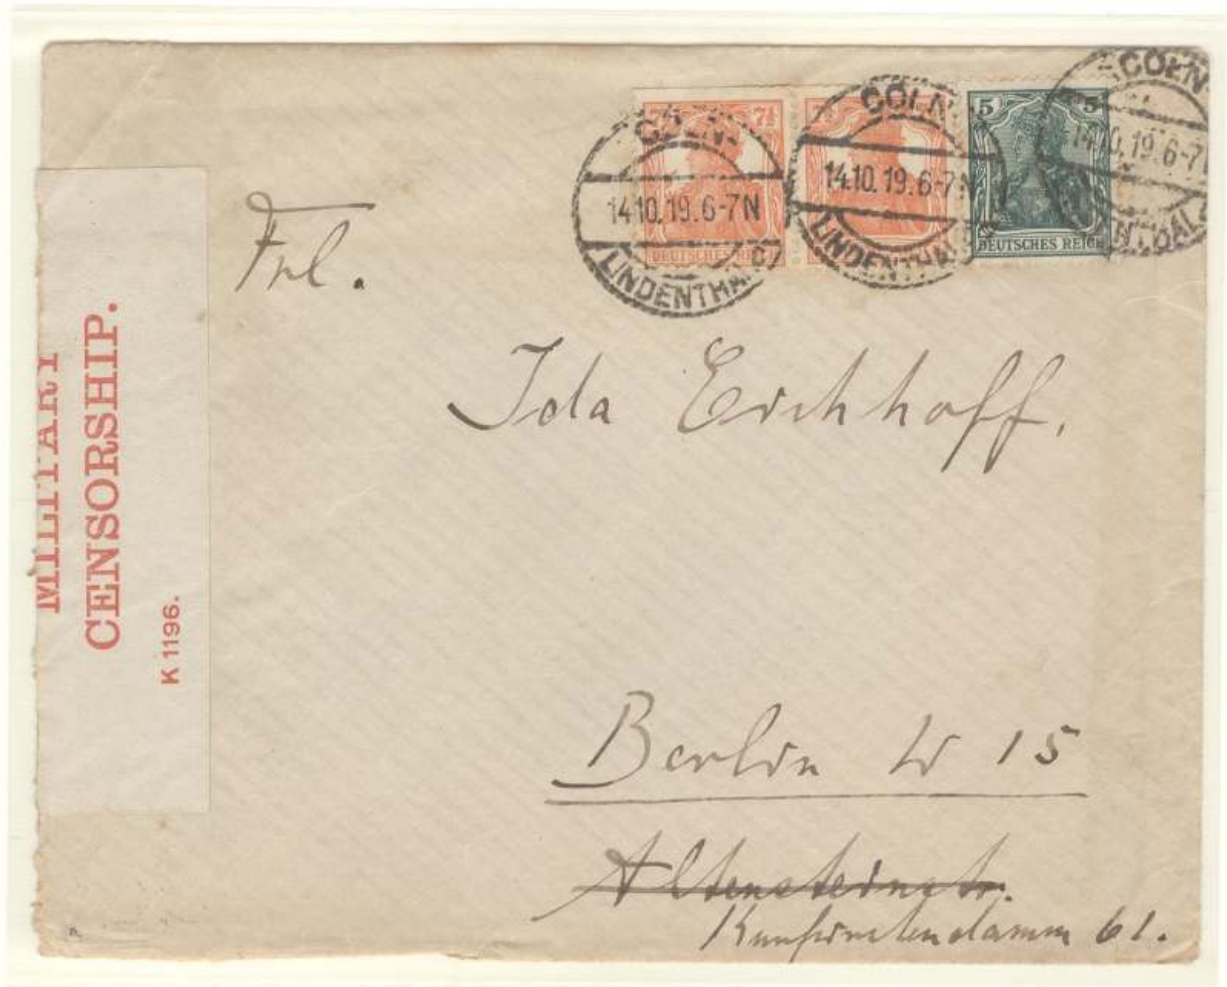 MILITARY
CENSORSHIP.
K 1196.
7½
DEUTSCHES REICH
CÖLN-
14.10.19.6-7N
LINDENTHAL
7½
CÖLN-
14.10.19.6-7N
LINDENTHAL
5 5
DEUTSCHES REICH
CÖLN-
14.10.19.6-7N
LINDENTHAL
Frl.
Ida Eichhoff.
Berlin W 15
Altensteinstr.
Kurfürstendamm 61.